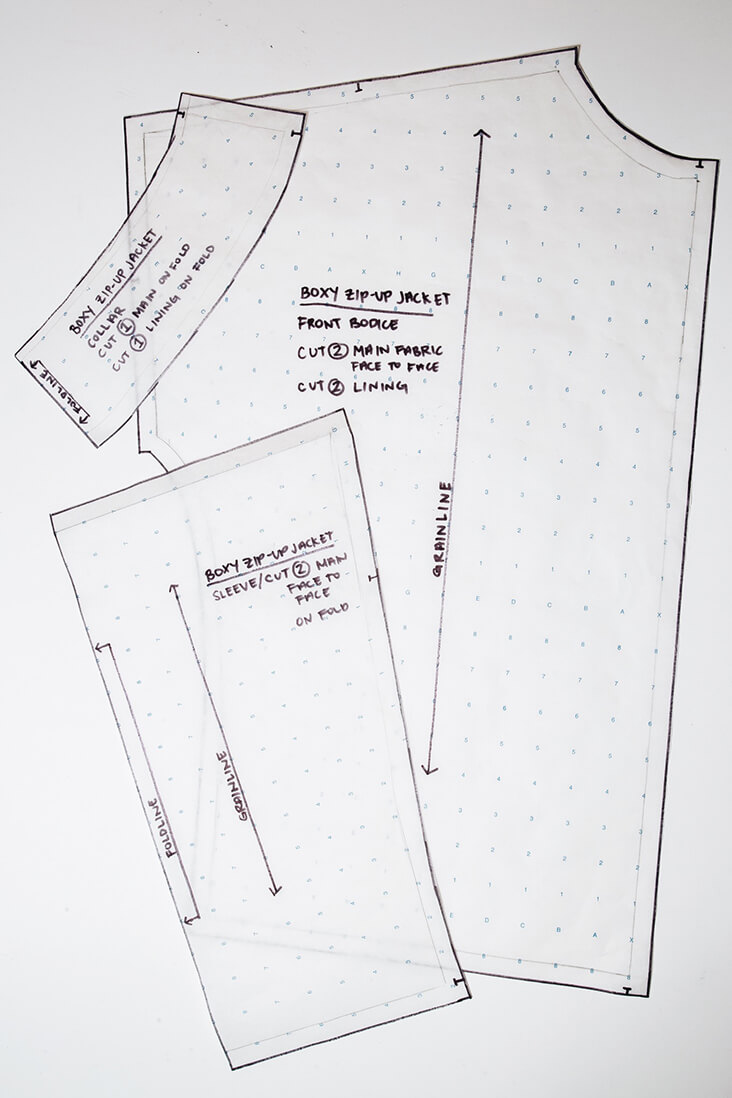 BOXY ZIP-UP JACKET
COLLAR
CUT 1 MAIN ON FOLD
CUT 1 LINING ON FOLD
FOLDLINE
BOXY ZIP-UP JACKET
FRONT BODICE
CUT 2 MAIN FABRIC
FACE TO FACE
CUT 2 LINING
GRAINLINE
BOXY ZIP-UP JACKET
SLEEVE/CUT 2 MAIN
FACE TO
FACE
ON FOLD
GRAINLINE
FOLDLINE